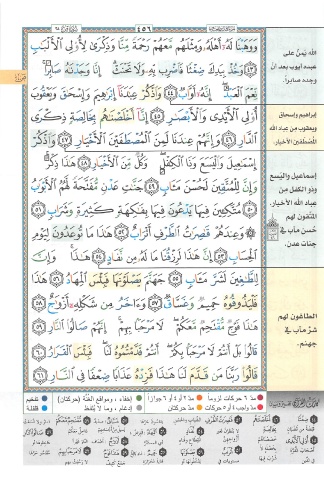 ٤٥٦
وَوَهَبْنَا لَهُۥٓ أَهْلَهُۥ وَمِثْلَهُم مَّعَهُمْ رَحْمَةً مِّنَّا وَذِكْرَىٰ لِأُو۟لِى ٱلْأَلْبَـٰبِ
﴿٤٣﴾ وَخُذْ بِيَدِكَ ضِغْثًا فَٱضْرِب بِّهِۦ وَلَا تَحْنَثْ ۗ إِنَّا وَجَدْنَـٰهُ صَابِرًا ۚ
نِّعْمَ ٱلْعَبْدُ ۖ إِنَّهُۥٓ أَوَّابٌ ﴿٤٤﴾ وَٱذْكُرْ عِبَـٰدَنَآ إِبْرَٰهِيمَ وَإِسْحَـٰقَ وَيَعْقُوبَ
أُو۟لِى ٱلْأَيْدِى وَٱلْأَبْصَـٰرِ ﴿٤٥﴾ إِنَّآ أَخْلَصْنَـٰهُم بِخَالِصَةٍ ذِكْرَى
ٱلدَّارِ ﴿٤٦﴾ وَإِنَّهُمْ عِندَنَا لَمِنَ ٱلْمُصْطَفَيْنَ ٱلْأَخْيَارِ ﴿٤٧﴾ وَٱذْكُرْ
إِسْمَـٰعِيلَ وَٱلْيَسَعَ وَذَا ٱلْكِفْلِ ۖ وَكُلٌّ مِّنَ ٱلْأَخْيَارِ ﴿٤٨﴾ هَـٰذَا ذِكْرٌ ۚ
وَإِنَّ لِلْمُتَّقِينَ لَحُسْنَ مَـَٔابٍ ﴿٤٩﴾ جَنَّـٰتِ عَدْنٍ مُّفَتَّحَةً لَّهُمُ ٱلْأَبْوَٰبُ
﴿٥٠﴾ مُتَّكِـِٔينَ فِيهَا يَدْعُونَ فِيهَا بِفَـٰكِهَةٍ كَثِيرَةٍ وَشَرَابٍ ﴿٥١﴾
۞ وَعِندَهُمْ قَـٰصِرَٰتُ ٱلطَّرْفِ أَتْرَابٌ ﴿٥٢﴾ هَـٰذَا مَا تُوعَدُونَ لِيَوْمِ
ٱلْحِسَابِ ﴿٥٣﴾ إِنَّ هَـٰذَا لَرِزْقُنَا مَا لَهُۥ مِن نَّفَادٍ ﴿٥٤﴾ هَـٰذَا ۚ وَإِنَّ
لِلطَّـٰغِينَ لَشَرَّ مَـَٔابٍ ﴿٥٥﴾ جَهَنَّمَ يَصْلَوْنَهَا فَبِئْسَ ٱلْمِهَادُ ﴿٥٦﴾ هَـٰذَا
فَلْيَذُوقُوهُ حَمِيمٌ وَغَسَّاقٌ ﴿٥٧﴾ وَءَاخَرُ مِن شَكْلِهِۦٓ أَزْوَٰجٌ ﴿٥٨﴾
هَـٰذَا فَوْجٌ مُّقْتَحِمٌ مَّعَكُمْ ۖ لَا مَرْحَبًۢا بِهِمْ ۚ إِنَّهُمْ صَالُوا۟ ٱلنَّارِ ﴿٥٩﴾
قَالُوا۟ بَلْ أَنتُمْ لَا مَرْحَبًۢا بِكُمْ ۖ أَنتُمْ قَدَّمْتُمُوهُ لَنَا ۖ فَبِئْسَ ٱلْقَرَارُ ﴿٦٠﴾
قَالُوا۟ رَبَّنَا مَن قَدَّمَ لَنَا هَـٰذَا فَزِدْهُ عَذَابًا ضِعْفًا فِى ٱلنَّارِ ﴿٦١﴾
الله يَمُنُّ على
عبده أيوب بعد أن
وجده صابراً.
إبراهيم وإسحق
ويعقوب من عباد الله
المصطفين الأخيار.
إسماعيل واليسع
وذو الكفل من
عباد الله الأخيار.
المتقون لهم
حُسن مآب في
جنات عدن.
الطاغون لهم
شرّ مآب في
جهنم.
مدّ ٦ حركات لزوماً
مدّ ٢ أو ٤ أو ٦ جوازاً
إخفاء، ومواقع الغُنَّة (حركتان)
تفخيم
مدّ واجب ٤ أو ٥ حركات
مدّ حركتان
إدغام، وما لا يُلفظ
قلقلة